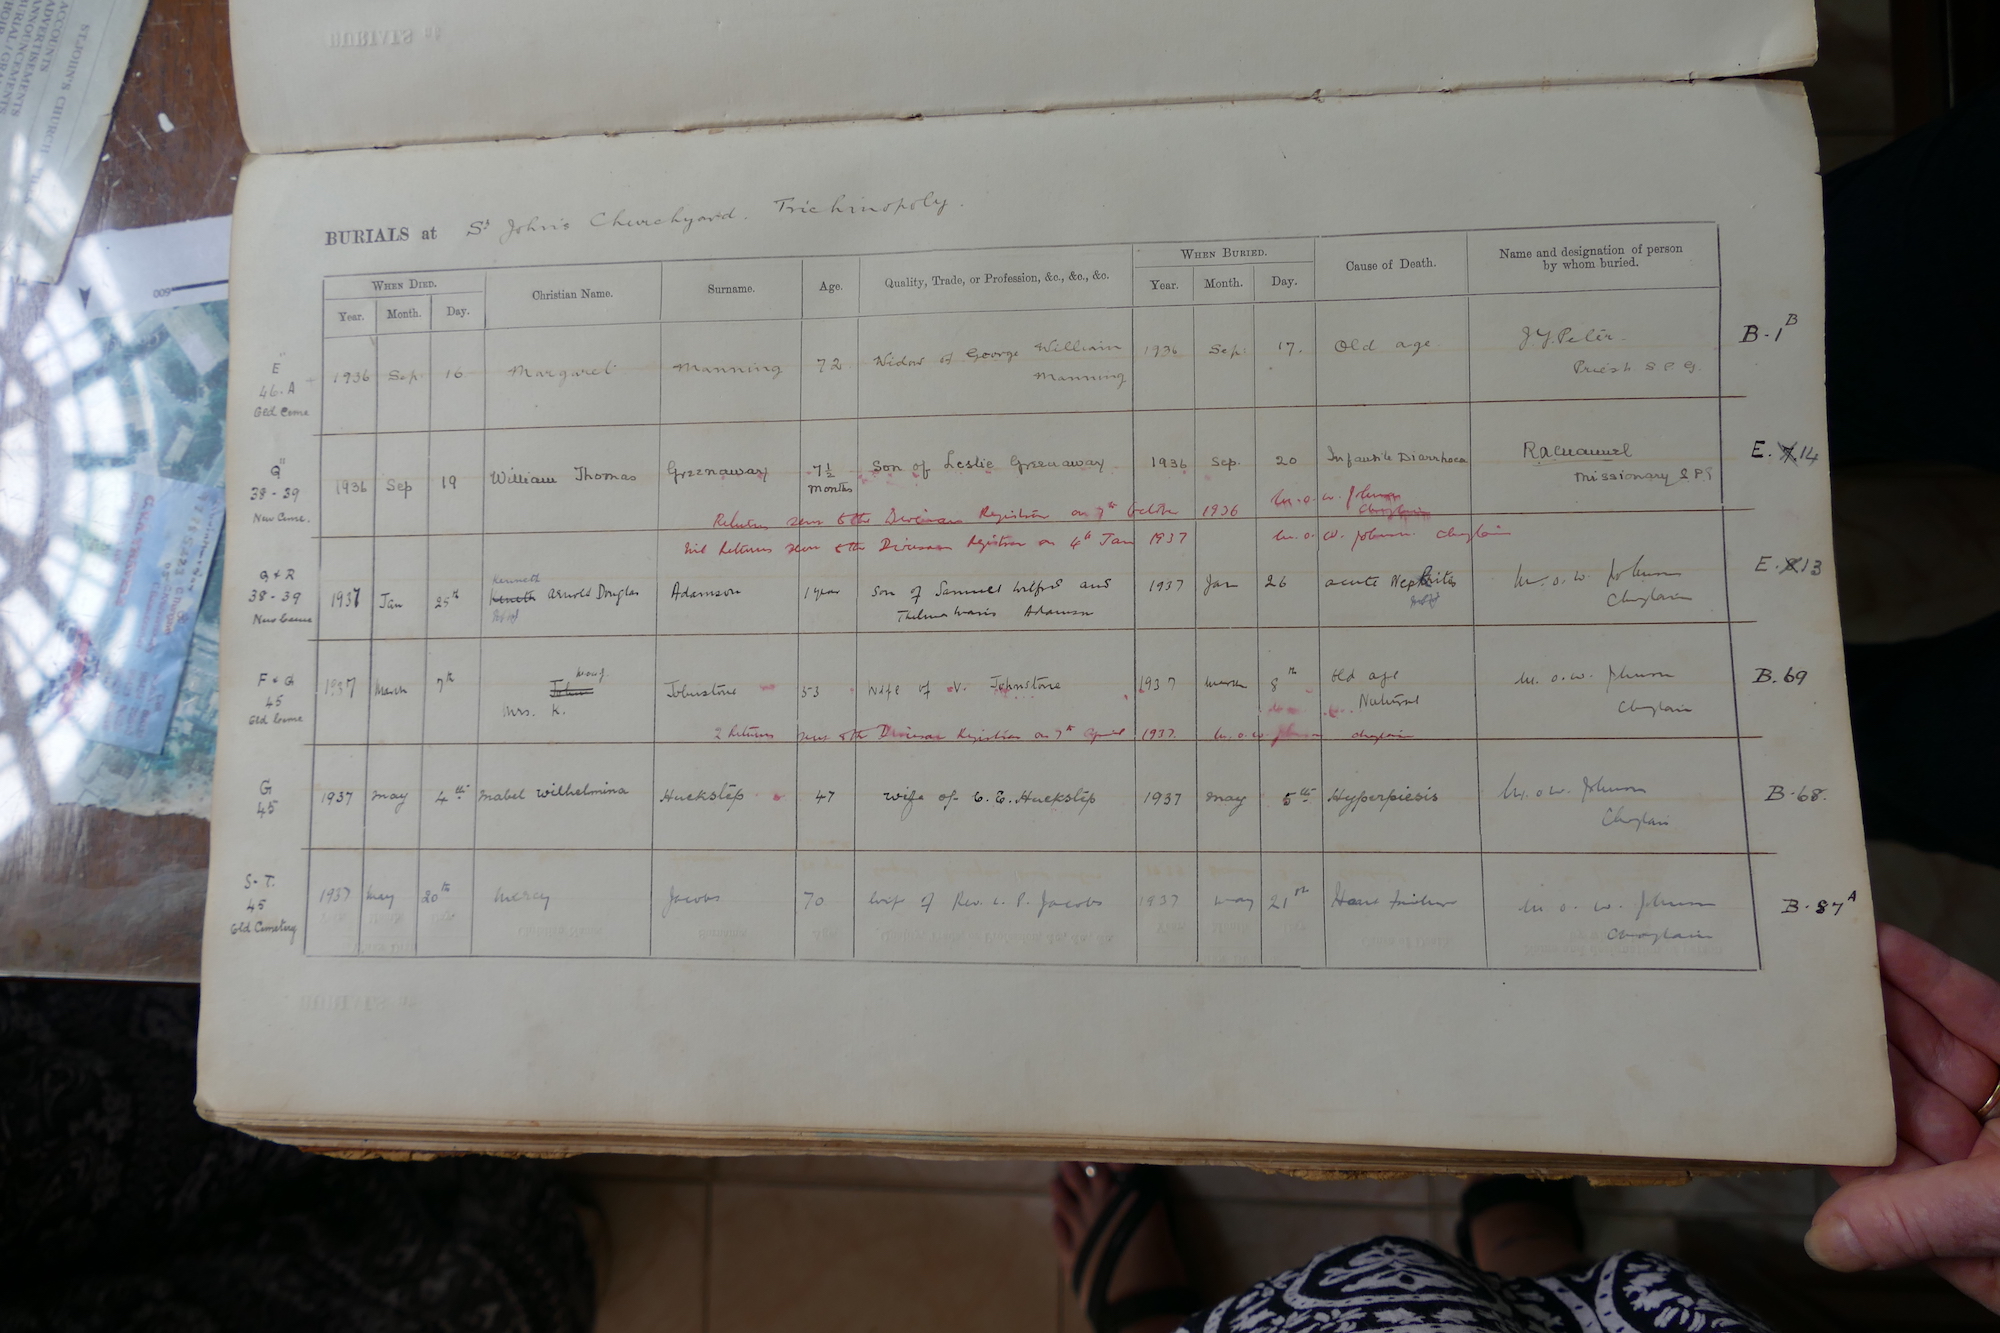 ST. JOHN'S CHURCH
ACCOUNTS
ADVERTISEMENTS
ANNOUNCEMENTS
600
BURIALS at St John's Churchyard. Trichinopoly.
WHEN DIED. Christian Name. Surname. Age. Quality, Trade, or Profession, &c., &c., &c. WHEN BURIED. Cause of Death. Name and designation of person
by whom buried.
Year. Month. Day. Year. Month. Day.
E"
46. A
Old Ceme
1936 Sep 16 Margaret Manning 72 Widow of George William
Manning
1936 Sep. 17. Old age J. Y. Peter.
Priest S. P. G.
B. 1 B
G"
38 - 39
New Ceme.
1936 Sep 19 William Thomas Greenaway 7½
months
Son of Leslie Greenaway 1936 Sep. 20 Infantile Diarrhoea
Missionary S.P.G
E. 14
Returns sent to the Diocesan Registrar on 7th October 1936 M. O. W. Johnson
Chaplain
Nil Returns sent to the Diocesan Registrar on 4th Jan 1937 M. O. W. Johnson Chaplain
Q & R
38 - 39
New Ceme
1937 Jan 25th Kenneth
Arnold Douglas Adamson 1 year Son of Samuel Wilfred and
Thelma Adamson
1937 Jan 26 acute Nephritis M. O. W. Johnson
Chaplain
E. 13
F & G
45
Old Ceme
1937 March 7th
Mrs. K.
Johnstone 53 Wife of V. Johnstone 1937 March 8th Old age
Natural
M. O. W. Johnson
Chaplain
B. 69
2 Returns sent to the Diocesan Registrar on 7th April 1937. M. O. W. Johnson Chaplain
G
45
1937 May 4th Mabel Wilhelmina Huckstep 47 Wife of C. E. Huckstep 1937 May 5th Hyperpiesis M. O. W. Johnson
Chaplain
B. 68.
S - T.
45
Old Cemetery
1937 May 20th Mercy Jacobs 70 Wife of Rev. L. P. Jacobs 1937 May 21st Heart Failure M. O. W. Johnson
Chaplain
B. 87 A